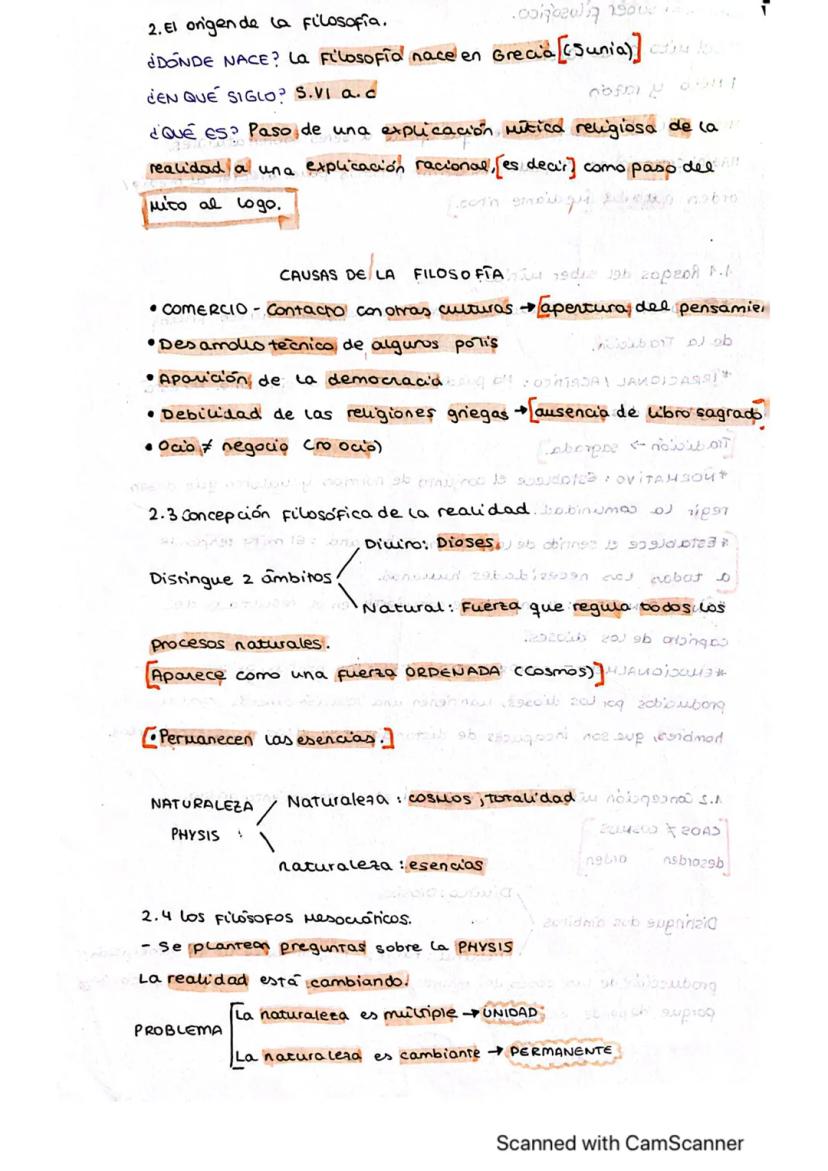 2. El origen de la Filosofía.
¿DÓNDE NACE? La Filosofía nace en Grecia (Junia)
¿EN QUÉ SIGLO? S.VI a.c
¿QUÉ ES? Paso de una explicación mítica religiosa de la
realidad a una explicación racional, es decir como paso del
Mito al Logo.
CAUSAS DE LA FILOSOFÍA
• COMERCIO - Contacto con otras culturas → apertura del pensamien
• Desarrollo técnico de algunos polis
• Aparición de la democracia
• Debilidad de las religiones griegas → ausencia de Libro sagrado
• Ocio ≠ negocio (no ocio)
2.3 Concepción Filosófica de la realidad.
Divino: Dioses.
Distingue 2 ámbitos
Natural: Fuerza que regula todos los
procesos naturales.
Aparece como una fuerza ORDENADA (Cosmos)
• Permanecen las esencias.
NATURALEZA Naturaleza: cosmos, totalidad
PHYSIS :
naturaleza: esencias
2.4 Los Filósofos
- Se plantean preguntas sobre la PHYSIS
La realidad está cambiando.
La naturaleza es múltiple → UNIDAD
PROBLEMA
La naturaleza es cambiante → PERMANENTE
Scanned with CamScanner